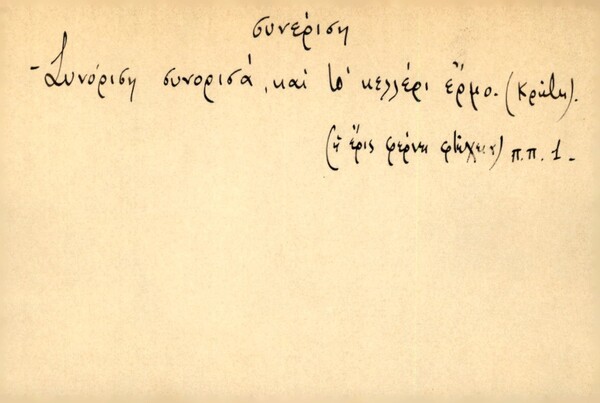 συνέριση
- Συνόριση συνορισά, καὶ τὸ κελλέρι ἔρμο. (Κρήτη).
(ἡ ἔρις φέρνει φτώχεια) π.π. 1 -